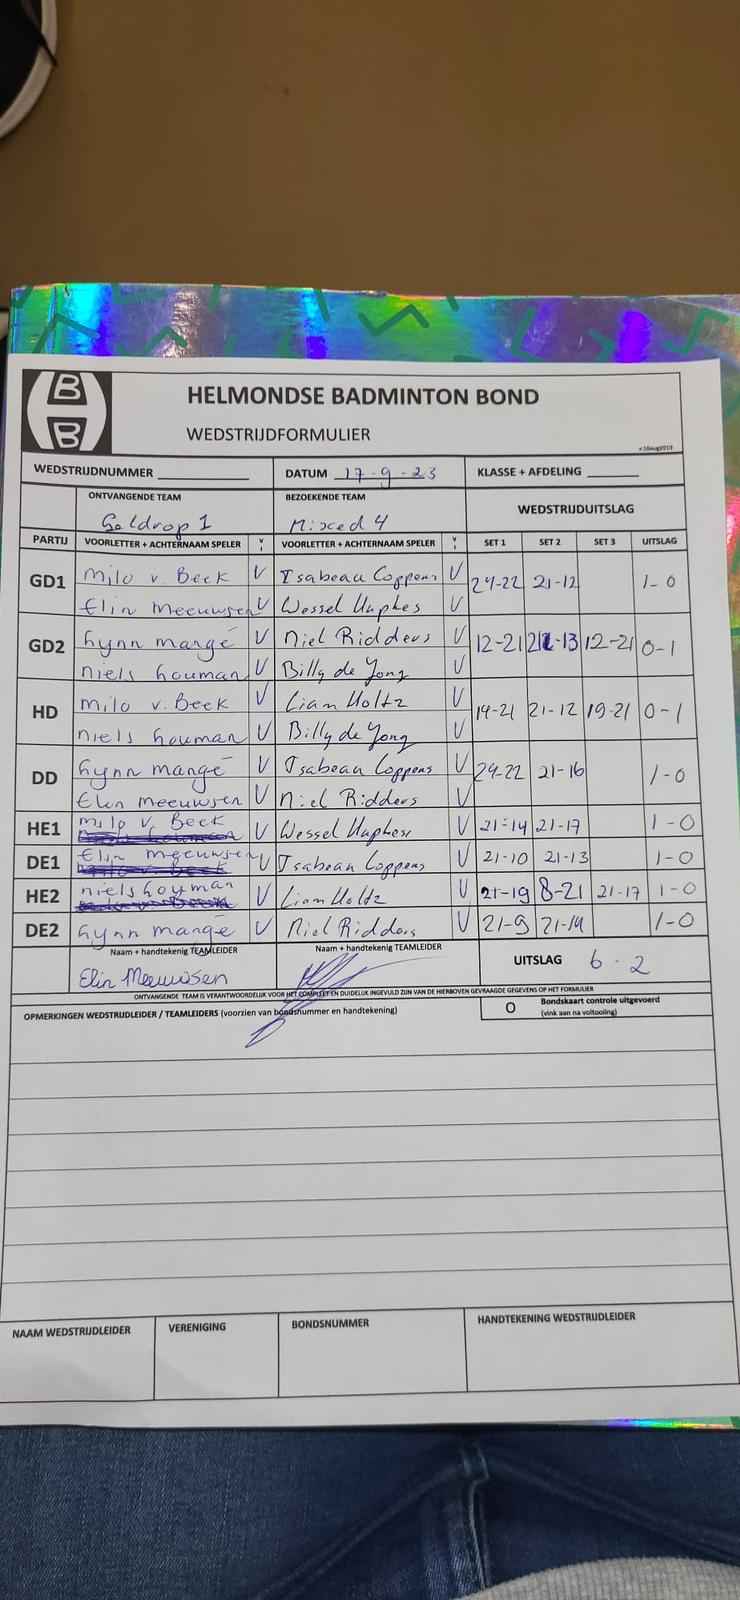 B
B
HELMONDSE BADMINTON BOND
WEDSTRIJDFORMULIER
WEDSTRIJDNUMMER DATUM 17-9-23 KLASSE + AFDELING
ONTVANGENDE TEAM BEZOEKENDE TEAM WEDSTRIJDUITSLAG
Geldrop 1 Mixed 4
PARTIJ VOORLETTER + ACHTERNAAM SPELER VOORLETTER + ACHTERNAAM SPELER SET 1 SET 2 SET 3 UITSLAG
GD1 Milo v. Beek V Isabeau Coppens V 24-22 21-12 1-0
Elin Meeuwsen V Wessel V
GD2 Lynn mangé V Niel Ridders V 12-21 21-13 12-21 0-1
niels houman V Billy de Jong V
HD milo v. Beek V Liam Holtz V 14-21 21-12 19-21 0-1
niels houman V Billy de Jong V
DD Lynn mangé V Isabeau Coppens V 24-22 21-16 1-0
Elin meeuwsen V Niel Ridders V
HE1 milo v. Beek V Wessel V 21-14 21-17 1-0
DE1 Elin meeuwsen V Isabeau Coppens V 21-10 21-13 1-0
HE2 niels houman V Liam Holtz V 21-19 8-21 21-17 1-0
DE2 Lynn mangé V Niel Ridders V 21-9 21-14 1-0
Naam + handtekenig TEAMLEIDER Naam + handtekenig TEAMLEIDER UITSLAG 6-2
Elin Meeuwsen
ONTVANGENDE TEAM IS VERANTWOORDELIJK VOOR HET COMPLEET EN DUIDELIJK INGEVULD ZIJN VAN DE HIERBOVEN GEVRAAGDE GEGEVENS OP HET FORMULIER
OPMERKINGEN WEDSTRIJDLEIDER / TEAMLEIDERS (voorzien van bondsnummer en handtekening) O Bondskaart controle uitgevoerd
(vink aan na voltooiing)
NAAM WEDSTRIJDLEIDER VERENIGING BONDSNUMMER HANDTEKENING WEDSTRIJDLEIDER